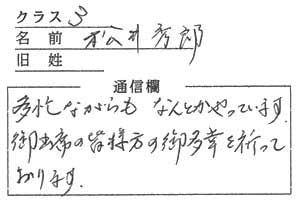 クラス 3
名前 松井秀郎
旧姓
通信欄
多忙ながらも なんとかやっています。
御出席の皆様方の御多幸を祈って
おります。